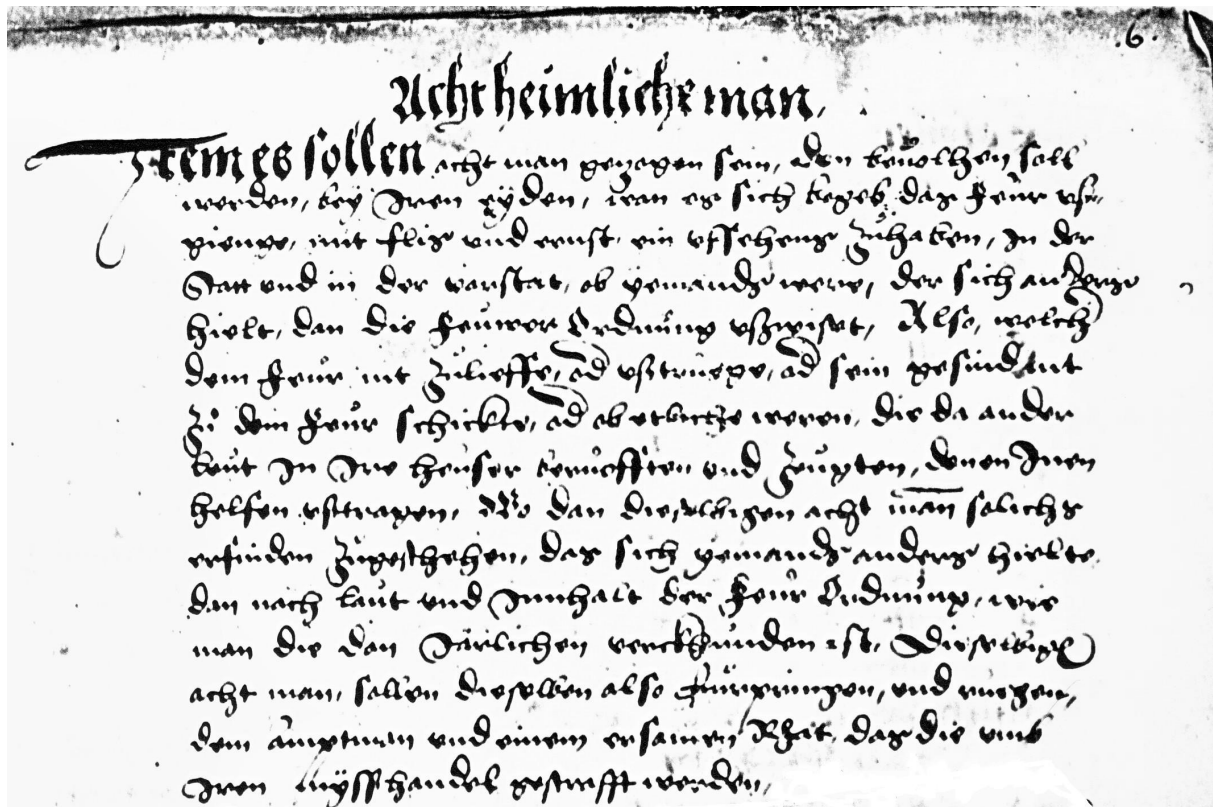 .6.
Acht heimliche man,
Item es sollen acht man gezogen sein, den beuolhen soll
werden, bey Iren eyden, wan es sich begeb, das Feür vß-
gienge, mit fliß vnd ernst, ein vffsehens zühaben, In der
Statt vnd in der vorstat, ob yemandß were, der sich anderß
hielt, dan die Feüwer Ordnüng vßwiset, Also, welch
dem Feür nit zülieffe, od vßtruege, od sein gesind nit
zü dem Feür schickte, od ob etliche weren, die da ander
leüt In Ire heüser berüefften vnd, denen Inen
helfen vßtragen, Wo dan dieselbigen acht man solichs
erfinden zügeschehen, das sich yemandß anderß hielte,
dan nach laüt vnd Innhalt der Feür Ordnüng, wie
man die dan Järlichen verckhünden ist, Dieselbigen
acht man, sollen dieselben also fürpringen, vnd ruegen,
dem amptman vnd einem ersamen Rhat, das die vmb
Iren myßhandel gestrafft werden,